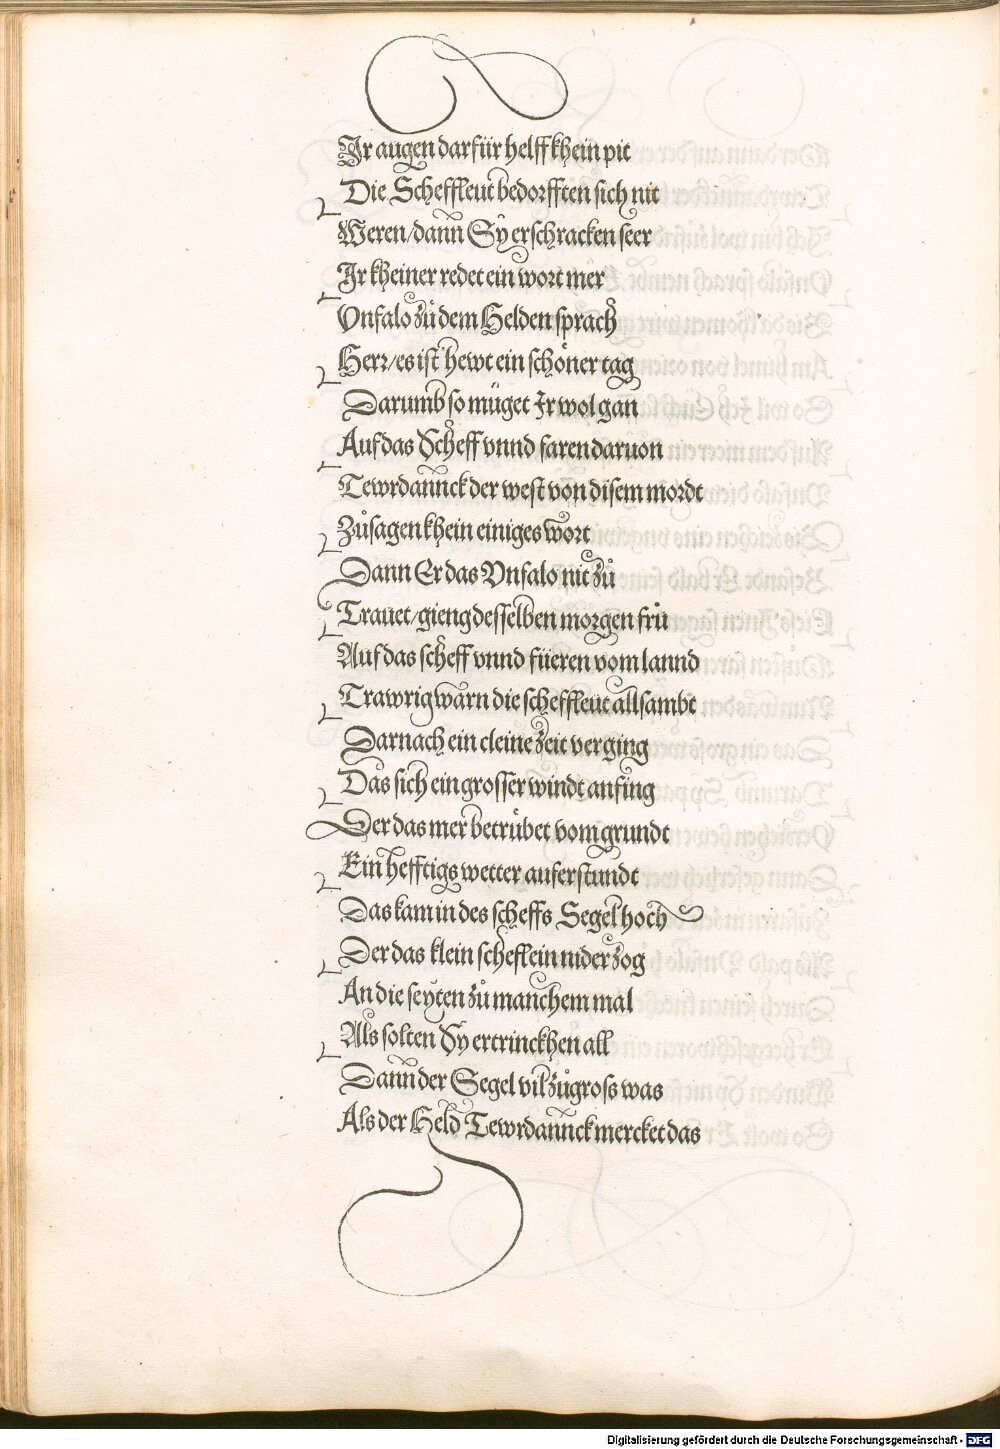 Ir augen darfür helff khein pit
Die Scheffleut bedorfften sich nit
Weren/dann Sy erschracken seer
Ir kheiner redet ein wort mer
Vnfalo zů dem Helden sprach
Herr/es ist hewt ein schöner tag
Darumb so müget Ir wol gan
Auf das Scheff vnnd faren daruon
Tewrdannck der west von disem mordt
Zůsagen khein einiges wort
Dann Er das Vnfalo nit zů
Trauet/gieng desselben morgen frů
Auf das scheff vnnd füeren vom lannd
Trawrig warn die scheffleut allsambt
Darnach ein cleine zeit verging
Das sich ein grosser windt anfing
Der das mer betrübet vom grundt
Ein hefftigs wetter auferstundt
Das kam in des scheffs Segel hoch
Der das klein scheflein niderzog
An die seyten zů manchem mal
Als solten Sy ertrinckhen all
Dann der Segel vil zůgross was
Als der Held Tewrdannck mercket das
Digitalisierung gefördert durch die Deutsche Forschungsgemeinschaft - DFG